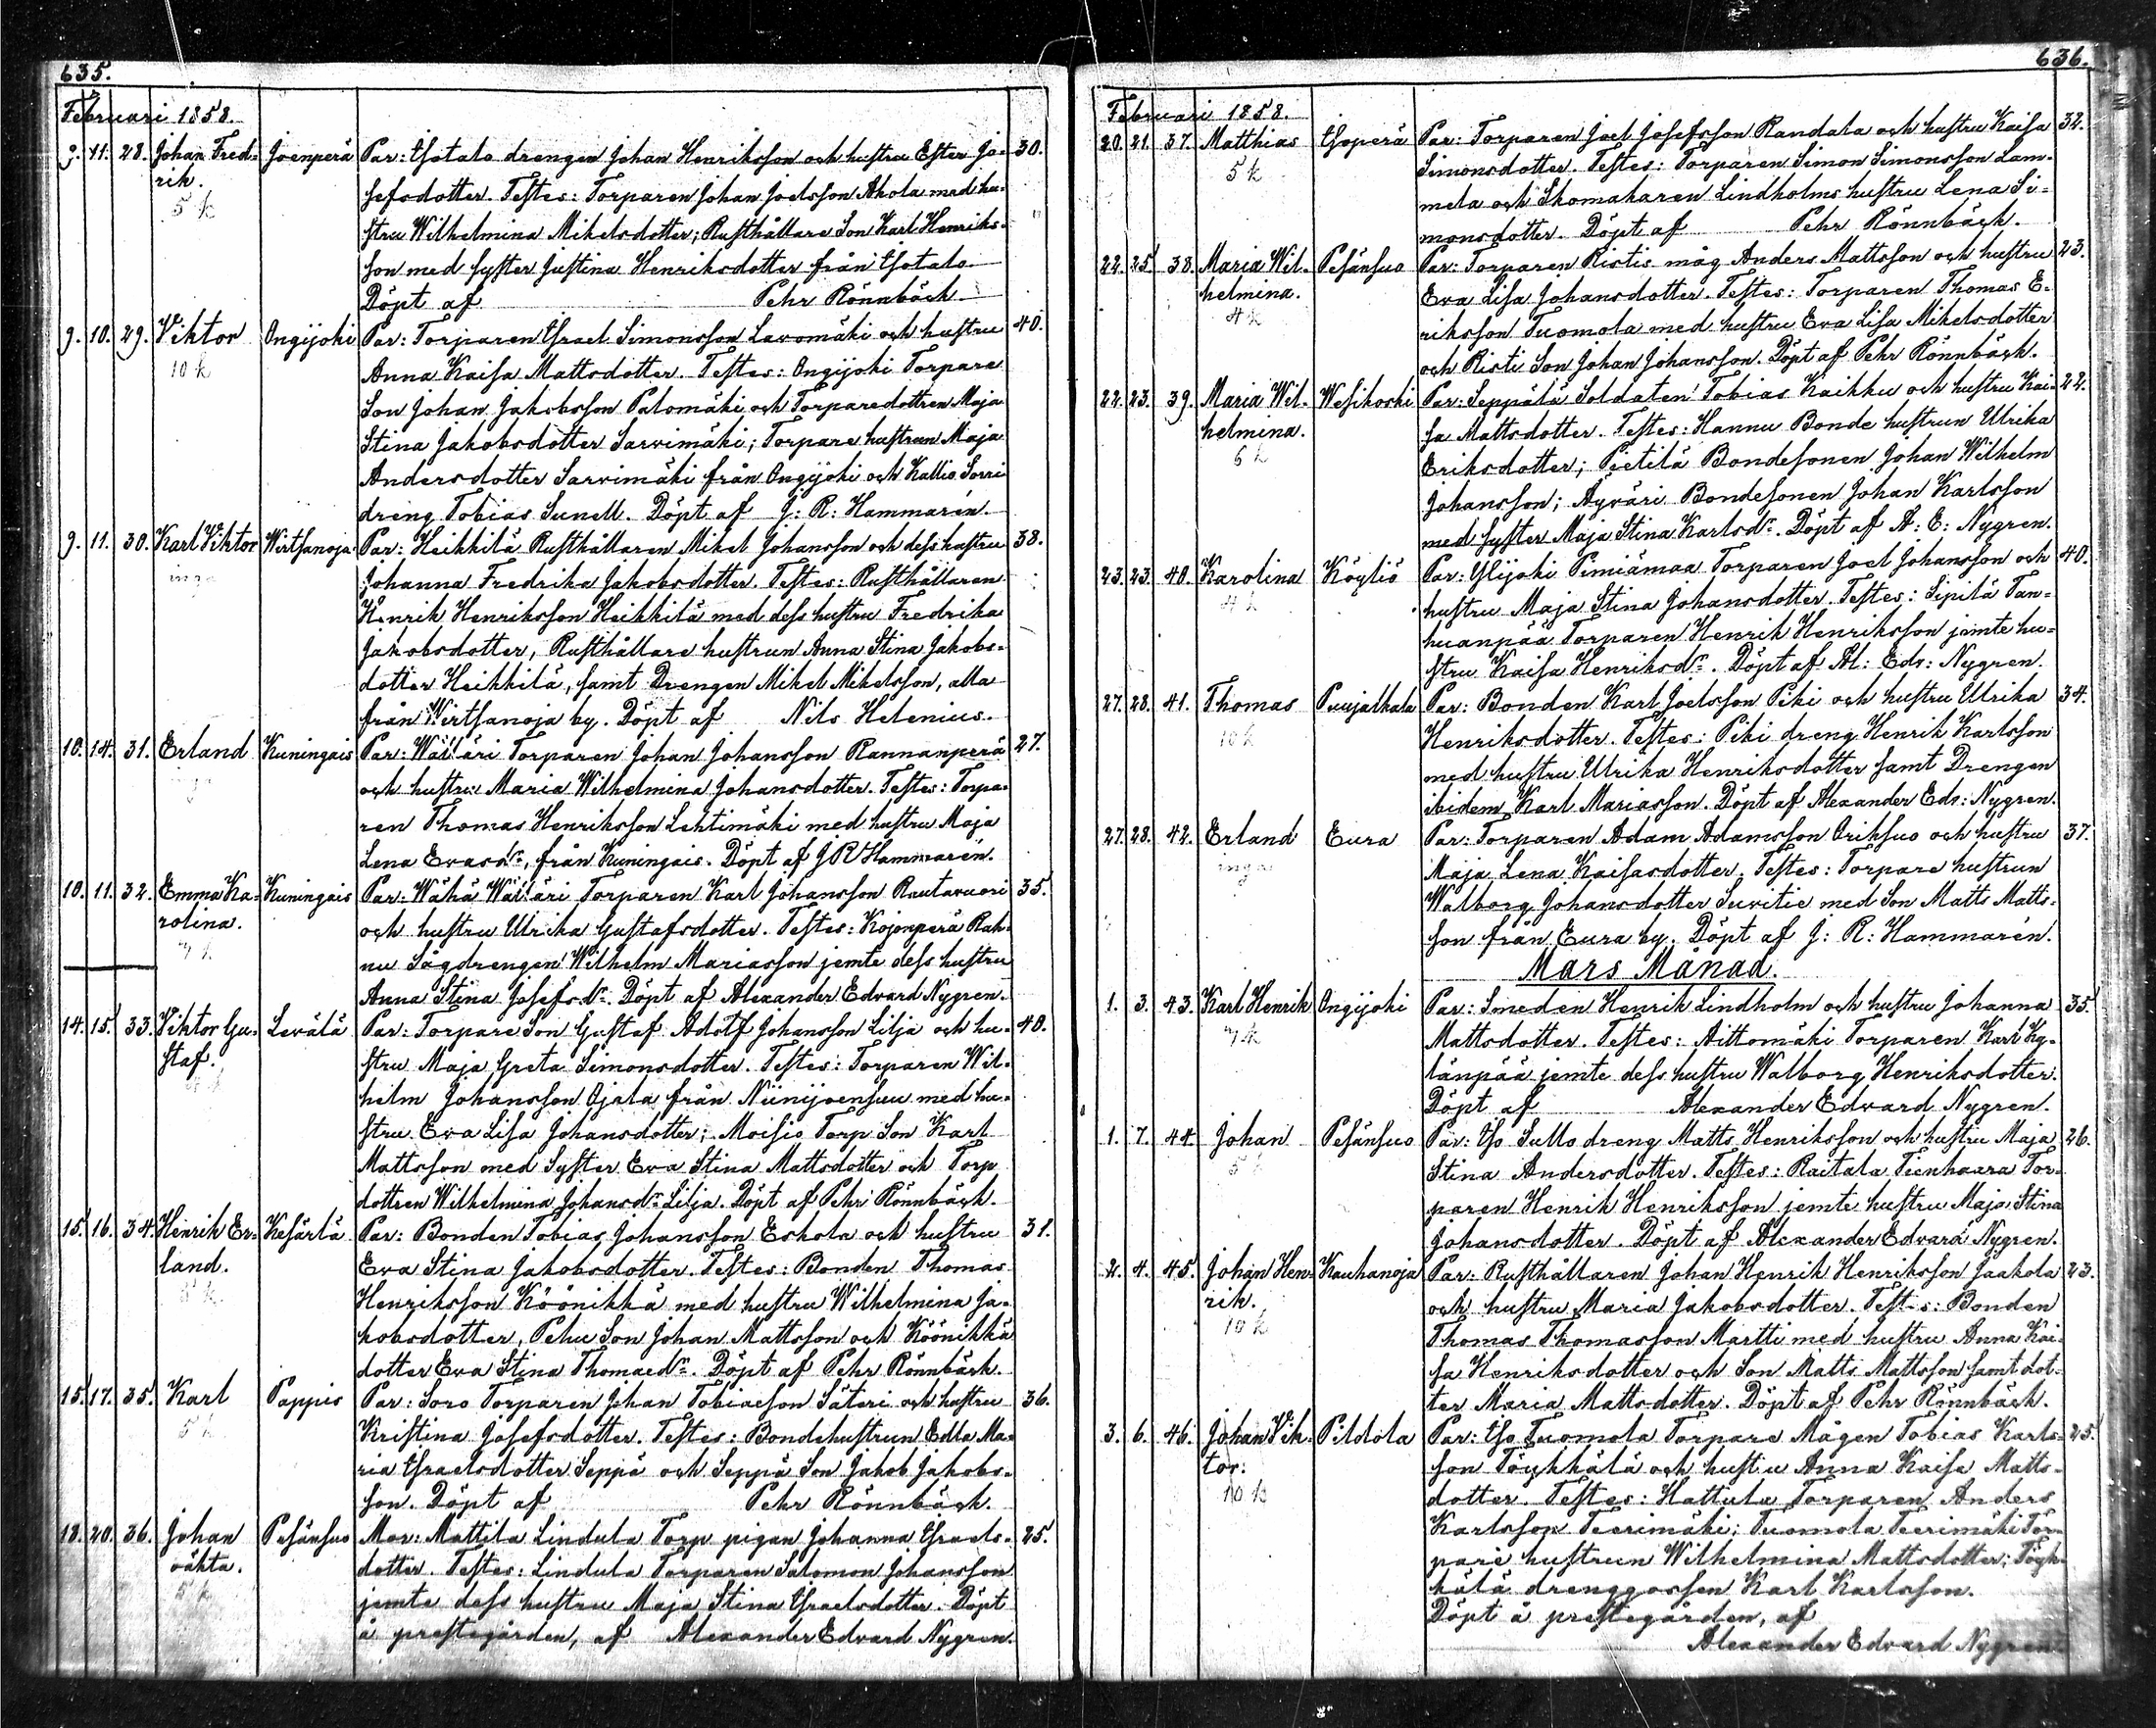 635.
Februari 1858.
9. 11. 28. Johan Fred- Joenperä Par: Isotalo drengen Johan Henriksson och hustru Ester Jo- 30.
rik. sefsdotter. Testes: Torparen Johan Joelsson Ahola med hu-
5 k stru Wilhelmina Mikelsdotter; Rusthållare Son Karl Henriks-
son med syster Justina Henriksdotter från Isotalo
Döpt af Pehr Rönnbäck
9. 10. 29. Viktor Ongijoki Par: Torparen Israel Simonsson Lavomäki och hustru 40.
10 k Anna Kaisa Mattsdotter. Testes: Ongijoki Torpare
Son Johan Jakobsson Palomäki och Torparedottren Maja
Stina Jakobsdotter Sarvimäki; Torpare hustrun Maja
Andersdotter Sarvimäki från Ongijoki och Kallio Sorri
dreng Tobias Sunell. Döpt af J: R: Hammarén.
9. 11. 30. Karl Viktor Wirtsanoja Par: Heikkilä Rusthållaren Mikel Johansson och dess hustru 38.
inga Johanna Fredrika Jakobsdotter. Testes: Rusthållaren
Henrik Henriksson Heikkilä med dess hustru Fredrika
Jakobsdotter, Rusthållare hustrun Anna Stina Jakobs-
dotter Heikkilä, samt Drengen Mikel Mikelsson, alla
från Wirtsanoja by. Döpt af Nils Helenius.
10. 14. 31. Erland Kuningais Par: Wälläri Torparen Johan Johansson Rannanperä 27.
och hustru Maria Wilhelmina Johansdotter. Testes: Torpa-
ren Thomas Henriksson Lehtimäki med hustru Maja
Lena Evasdr, från Kuningais. Döpt af J R Hammarén.
10. 11. 32. Emma Ka- Kuningais Par: Wähä Wälläri Torparen Karl Johansson Rautavuori 35.
rolina. och hustru Ulrika Gustafsdotter. Testes: Kojonperä Rah-
7 k nu Sågdrengen Wilhelm Mariasson jemte dess hustru
Anna Stina Josefsdr. Döpt af Alexander Edvard Nygren.
14. 15. 33. Viktor Gu- Levälä Par: Torpare Son Gustaf Adolf Johansson Lilja och hu- 40.
staf. stru Maja Greta Simonsdotter. Testes: Torparen Wil-
helm Johansson Ojala från Niinijoensuu med hu-
stru Eva Lisa Johansdotter; Moisio Torp Son Karl
Mattsson med Syster Eva Stina Mattsdotter och Torp
dottren Wilhelmina Johansdr Lilja. Döpt af Pehr Rönnbäck.
15. 16. 34. Henrik Er- Kesärlä Par: Bonden Tobias Johansson Eskola och hustru 31.
land. Eva Stina Jakobsdotter. Testes: Bonden Thomas
Henriksson Köönikkä med hustru Wilhelmina Ja-
kobsdotter, Pehu Son Johan Mattsson och Köönikkä
dotter Eva Stina Thomaedr. Döpt af Pehr Rönnbäck.
15. 17. 35. Karl Pappis Par: Soro Torparen Johan Tobiasson Säteri och hustru 36.
5 k Kristina Josefsdotter. Testes: Bondehustrun Edla Ma-
ria Israelsdotter Seppä och Seppä Son Jakob Jakobs-
son. Döpt af Pehr Rönnbäck.
18. 20. 36. Johan Pesänsuo Mor: Mattila Lindula Torp pigan Johanna Israels- 25.
oäkta. dotter. Testes: Lindula Torparen Salomon Johansson
5 k jemte dess hustru Maja Stina Israelsdotter. Döpt
å prestegården, af Alexander Edvard Nygren.
636.
Februari 1858.
20. 21. 37. Matthias Isoperä Par: Torparen Joel Josefsson Randala och hustru Kaisa 32.
5 k Simonsdotter. Testes: Torparen Simon Simonsson Lam-
mela och Skomakaren Lindholms hustru Lena Si-
monsdotter. Döpt af Pehr Rönnbäck.
22. 25. 38. Maria Wil- Pesänsuo Par: Torparen Ristis måg Anders Mattsson och hustru 23.
helmina. Eva Lisa Johansdotter. Testes: Torparen Thomas E-
4 k riksson Tuomola med hustru Eva Lisa Mikelsdotter
och Risti Son Johan Johansson. Döpt af Pehr Rönnbäck.
22. 23. 39. Maria Wil- Wesikoski Par: Seppälä Soldaten Tobias Kaikku och hustru Kai- 22.
helmina. sa Mattsdotter. Testes: Hannu Bonde hustrun Ulrika
6 k Eriksdotter; Pietilä Bondesonen Johan Wilhelm
Johansson; Äyväri Bondesonen Johan Karlsson
med syster Maja Stina Karlsdr. Döpt af A: E: Nygren.
23. 23. 40. Karolina Köyliö Par: Ylijoki Pimiämaa Torparen Joel Johansson och 40.
4 k hustru Maja Stina Johansdotter. Testes: Sipilä Tan-
huanpää Torparen Henrik Henriksson jemte hu-
stru Kaisa Henriksdr. Döpt af Al: Edv: Nygren.
27. 28. 41. Thomas Puujalkala Par: Bonden Karl Joelsson Piki och hustru Ulrika 34.
10 k Henriksdotter. Testes: Piki dreng Henrik Karlsson
med hustru Ulrika Henriksdotter samt Drengen
ibidem Karl Mariasson. Döpt af Alexander Edv: Nygren.
27. 28. 42. Erland Eura Par: Torparen Adam Adamsson Orihsuo och hustru 37.
inga Maja Lena Kaisasdotter. Testes: Torpare hustrun
Walborg Johansdotter Suvitie med Son Matts Matts-
son från Eura by. Döpt af J: R: Hammarén.
Mars Månad.
1. 3. 43. Karl Henrik Ongijoki Par: Smeden Henrik Lindholm och hustru Johanna 35.
7 k Mattsdotter. Testes: Aittomäki Torparen Karl Ky-
länpää jemte dess hustru Walborg Henriksdotter.
Döpt af Alexander Edvard Nygren.
1. 7. 44. Johan Pesänsuo Par: Iso Sullo dreng Matts Henriksson och hustru Maja 26.
5 k Stina Andersdotter. Testes: Raitala Tienhaara Tor-
paren Henrik Henriksson jemte hustru Maja Stina
Johansdotter. Döpt af Alexander Edvard Nygren.
2. 4. 45. Johan Hen- Kauhanoja Par: Rusthållaren Johan Henrik Henriksson Jaakola 23.
rik. och hustru Maria Jakobsdotter. Testes: Bonden
10 k Thomas Thomasson Martti med hustru Anna Kai-
sa Henriksdotter och Son Matts Mattsson samt dot-
ter Maria Mattsdotter. Döpt af Pehr Rönnbäck.
3. 6. 46. Johan Vik- Pildola Par: Iso Tuomola Torpare Mågen Tobias Karls- 25.
tor: son Töykkälä och hustru Anna Kaisa Matts-
10 k dotter. Testes: Hattula Torparen Anders
Karlsson Teerimäki; Tuomola Teerimäki Tor-
pare hustrun Wilhelmina Mattsdotter; Töyk-
kälä drenggossen Karl Karlsson.
Döpt å prestegården, af
Alexander Edvard Nygren